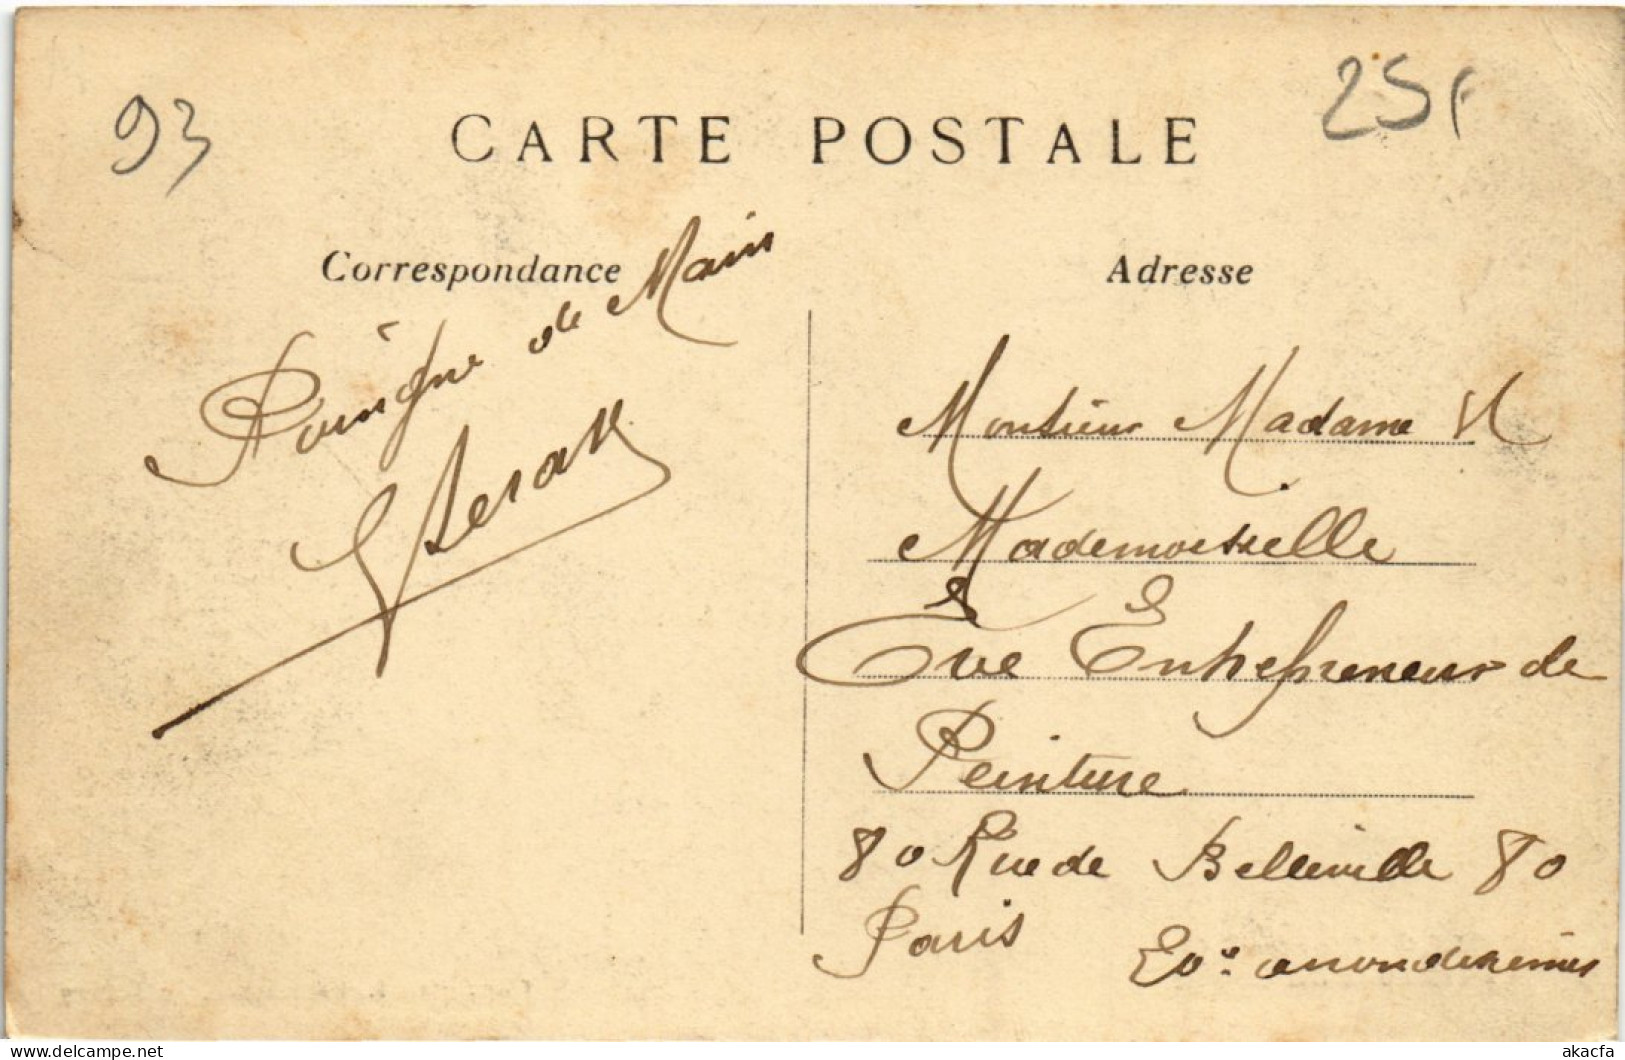 93
25f
CARTE POSTALE
Correspondance
Poingné de Main
Adresse
Monsieur Madame &
Mademoiselle
Eve Entrepreneur de
Peinture
80 Rue de Belleville 80
Paris
20e arrondissement
akacfa